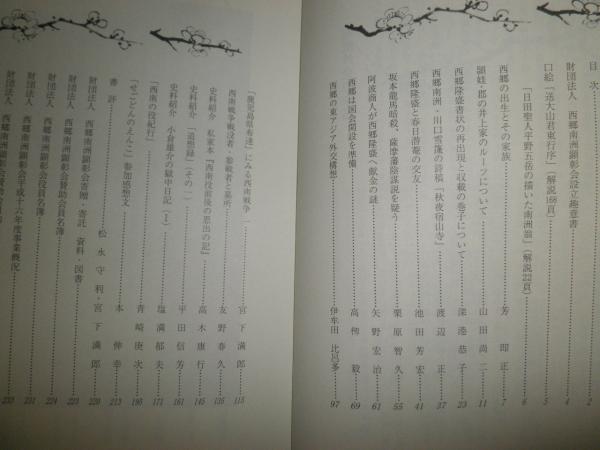 目次
財団法人 西郷南洲顕彰会設立趣意書………2
口絵「送大山君東行序」(解説168頁)………4
「日田聖人平野五岳の描いた南洲翁」(解説22頁)………6
西郷の出生とその家族………芳 即正 7
頴娃・郡の井上家のルーツについて………山田尚二 11
西郷隆盛書状の再出現と収載の巻子について………深港恭子 23
西郷南洲・川口雪篷の詩稿「秋夜宿山寺」………渡辺 正 37
西郷隆盛と春日潜菴の交友………池田芳宏 41
坂本龍馬暗殺、薩摩藩陰謀説を疑う………栗原智久 55
阿波商人が西郷隆盛へ献金の謎………矢野宏治 61
西郷は国会開設を準備………高栁 毅 69
西郷の東アジア外交構想………伊牟田比呂多 97
「鹿児島県布達」にみる西南戦争………宮下満郎 115
西南戦争戦没者・参戦者と墓所………友野春久 135
史料紹介 私家本『西南役前後の思出の記』………高木康行 145
史料紹介 「追想録」(その一)………平田信芳 161
史料紹介 小倉雄介の獄中日記(1)………塩満郁夫 171
「西南の役紀行」………青崎庚次 195
「せごどんのえんこ」参加感想文………本 伸幸 213
書評………松永守利・宮下満郎 220
財団法人 西郷南洲顕彰会寄贈・寄託 資料・図書………223
財団法人 西郷南洲顕彰会賛助会員名簿………224
財団法人 西郷南洲顕彰会役員名簿………231
財団法人 西郷南洲顕彰会平成十六年度事業概況………233